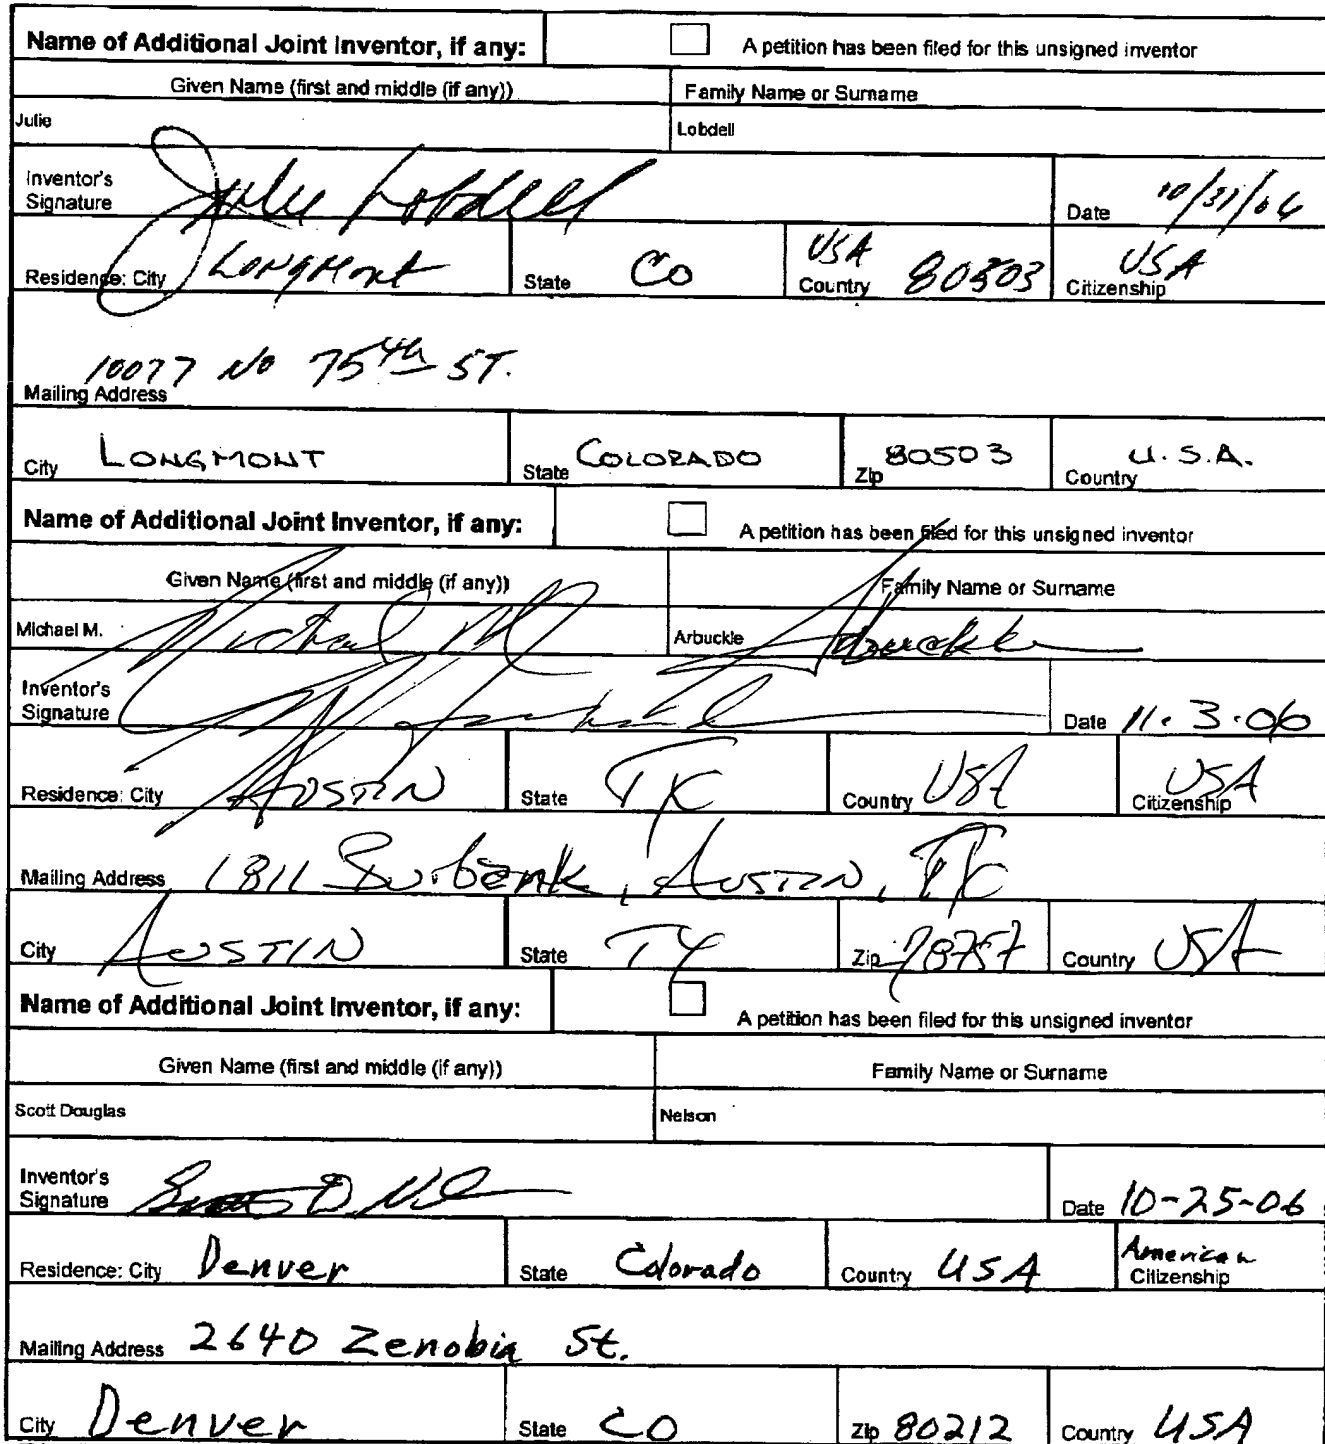 Name of Additional Joint Inventor, if any: A petition has been filed for this unsigned inventor
Given Name (first and middle (if any)) Family Name or Surname
Julie Lobdell
Inventor's Signature Julie Lobdell Date 10/31/06
Residence: City Longmont State CO Country USA 80503 Citizenship USA
10077 No 75th ST.
Mailing Address
City LONGMONT State COLORADO Zip 80503 Country U.S.A.
Name of Additional Joint Inventor, if any: A petition has been filed for this unsigned inventor
Given Name (first and middle (if any)) Family Name or Surname
Michael M. Michael M Arbuckle Arbuckle
Inventor's Signature Date 11.3.06
Residence: City AUSTIN State TX Country USA Citizenship USA
Mailing Address 1811 Burbank, AUSTIN, TX
City AUSTIN State TX Zip 78757 Country USA
Name of Additional Joint Inventor, if any: A petition has been filed for this unsigned inventor
Given Name (first and middle (if any)) Family Name or Surname
Scott Douglas Nelson
Inventor's Signature Date 10-25-06
Residence: City Denver State Colorado Country USA Citizenship American
Mailing Address 2640 Zenobia St.
City Denver State CO Zip 80212 Country USA